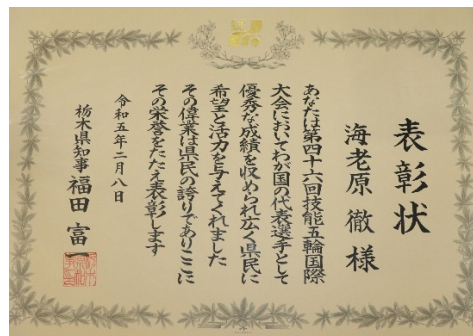 表彰状
海老原 徹 様
あなたは第四十六回技能五輪国際
大会においてわが国の代表選手として
優秀な成績を収められ広く県民に
希望と活力を与えてくれました
その偉業は県民の誇りでありここに
その栄誉をたたえ表彰します
令和五年二月八日
栃木県知事 福田富一